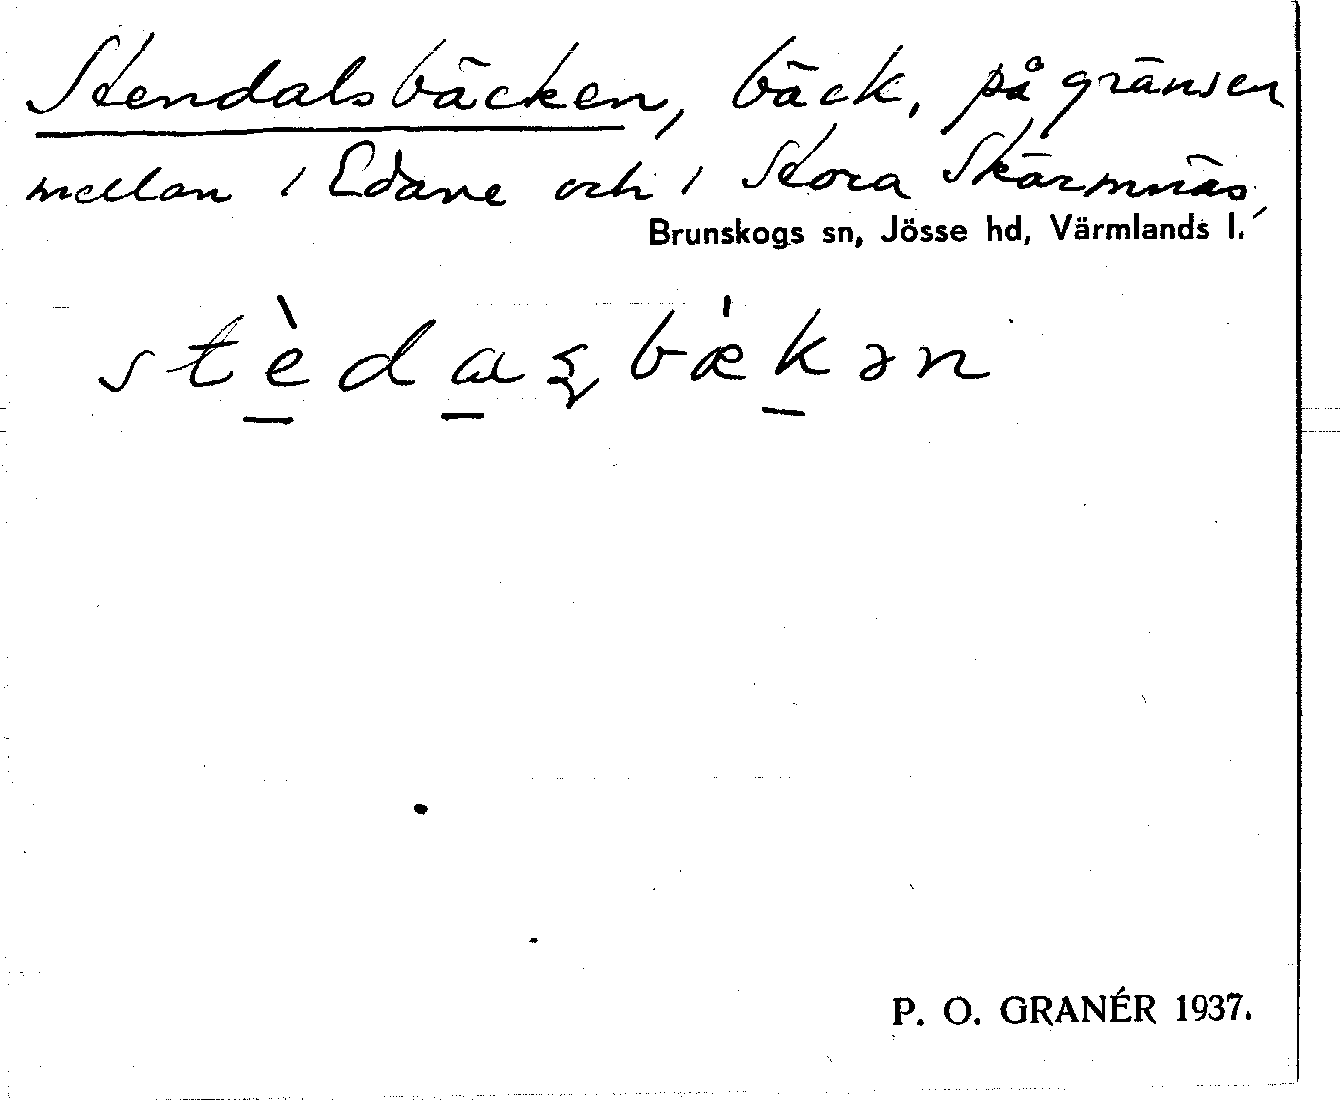 Stendalsbäcken, bäck, på gränsen
mellan 1 Edane och 1 Stora Skärmnäs,
Brunskogs sn, Jösse hd, Värmlands l.
stèdaʂbæ̍kən
P. O. GRANÉR 1937.